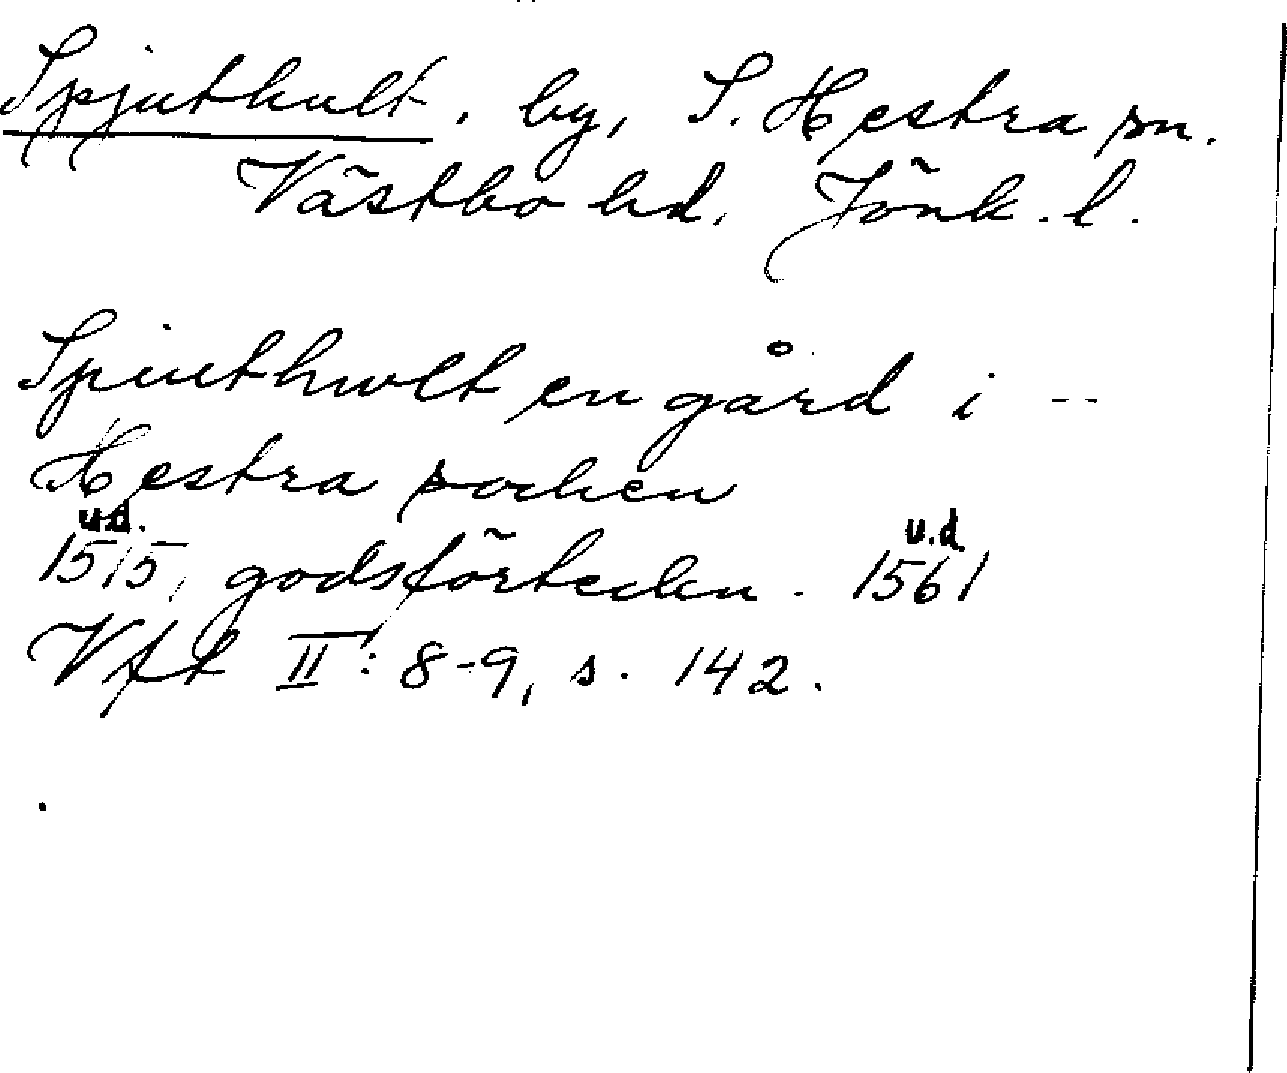 Spjuthult, by, S. Hestra sn.
Västbo hd. Jönk. l.
Spiuthwlt en gård i --
Hestra sochen
u.d. u.d.
1515, godsförteckn. 1561
Vft II: 8-9, s. 142.